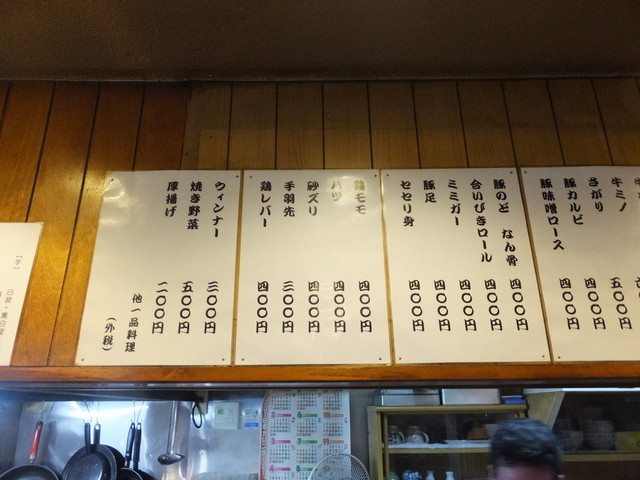 牛ミノ 五〇〇円
さがり 四〇〇円
豚カルビ 四〇〇円
豚味噌ロース 四〇〇円
豚のど なん骨 四〇〇円
合いびきロール 四〇〇円
ミミガー 四〇〇円
豚足 四〇〇円
セセリ身 四〇〇円
鶏モモ 四〇〇円
ハツ 四〇〇円
砂ズリ 四〇〇円
手羽先 三〇〇円
鶏レバー 四〇〇円
ウィンナー 三〇〇円
焼き野菜 五〇〇円
厚揚げ 二〇〇円
他一品料理
(外税)
【芋】